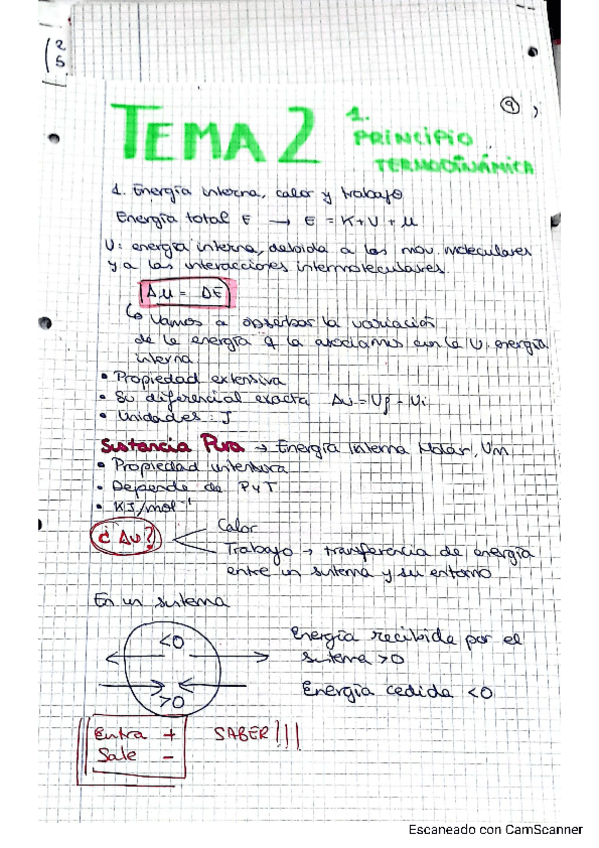 2
5
9
TEMA 2
1. PRINCIPIO
TERMODINÁMICA
1. Energía interna, calor y trabajo
Energía total E → E = K+V+U
U: energía interna, debida a los mov. moleculares
y a las interacciones intermoleculares.
ΔU = ΔE
Vamos a observar la variación
de la energía q la asociamos con la U, energía
interna
• Propiedad extensiva
• Su diferencial exacta ΔU = Uf - Ui
• Unidades: J
Sustancia Pura → Energía Interna Molar, Um
• Propiedad intensiva
• Depende de P y T
• KJ/mol⁻¹
¿ΔU?
Calor
Trabajo → transferencia de energía
entre un sistema y su entorno
En un sistema
<0
>0
Energía recibida por el
sistema >0
Energía cedida <0
Entra +
Sale -
SABER!!!
Escaneado con CamScanner